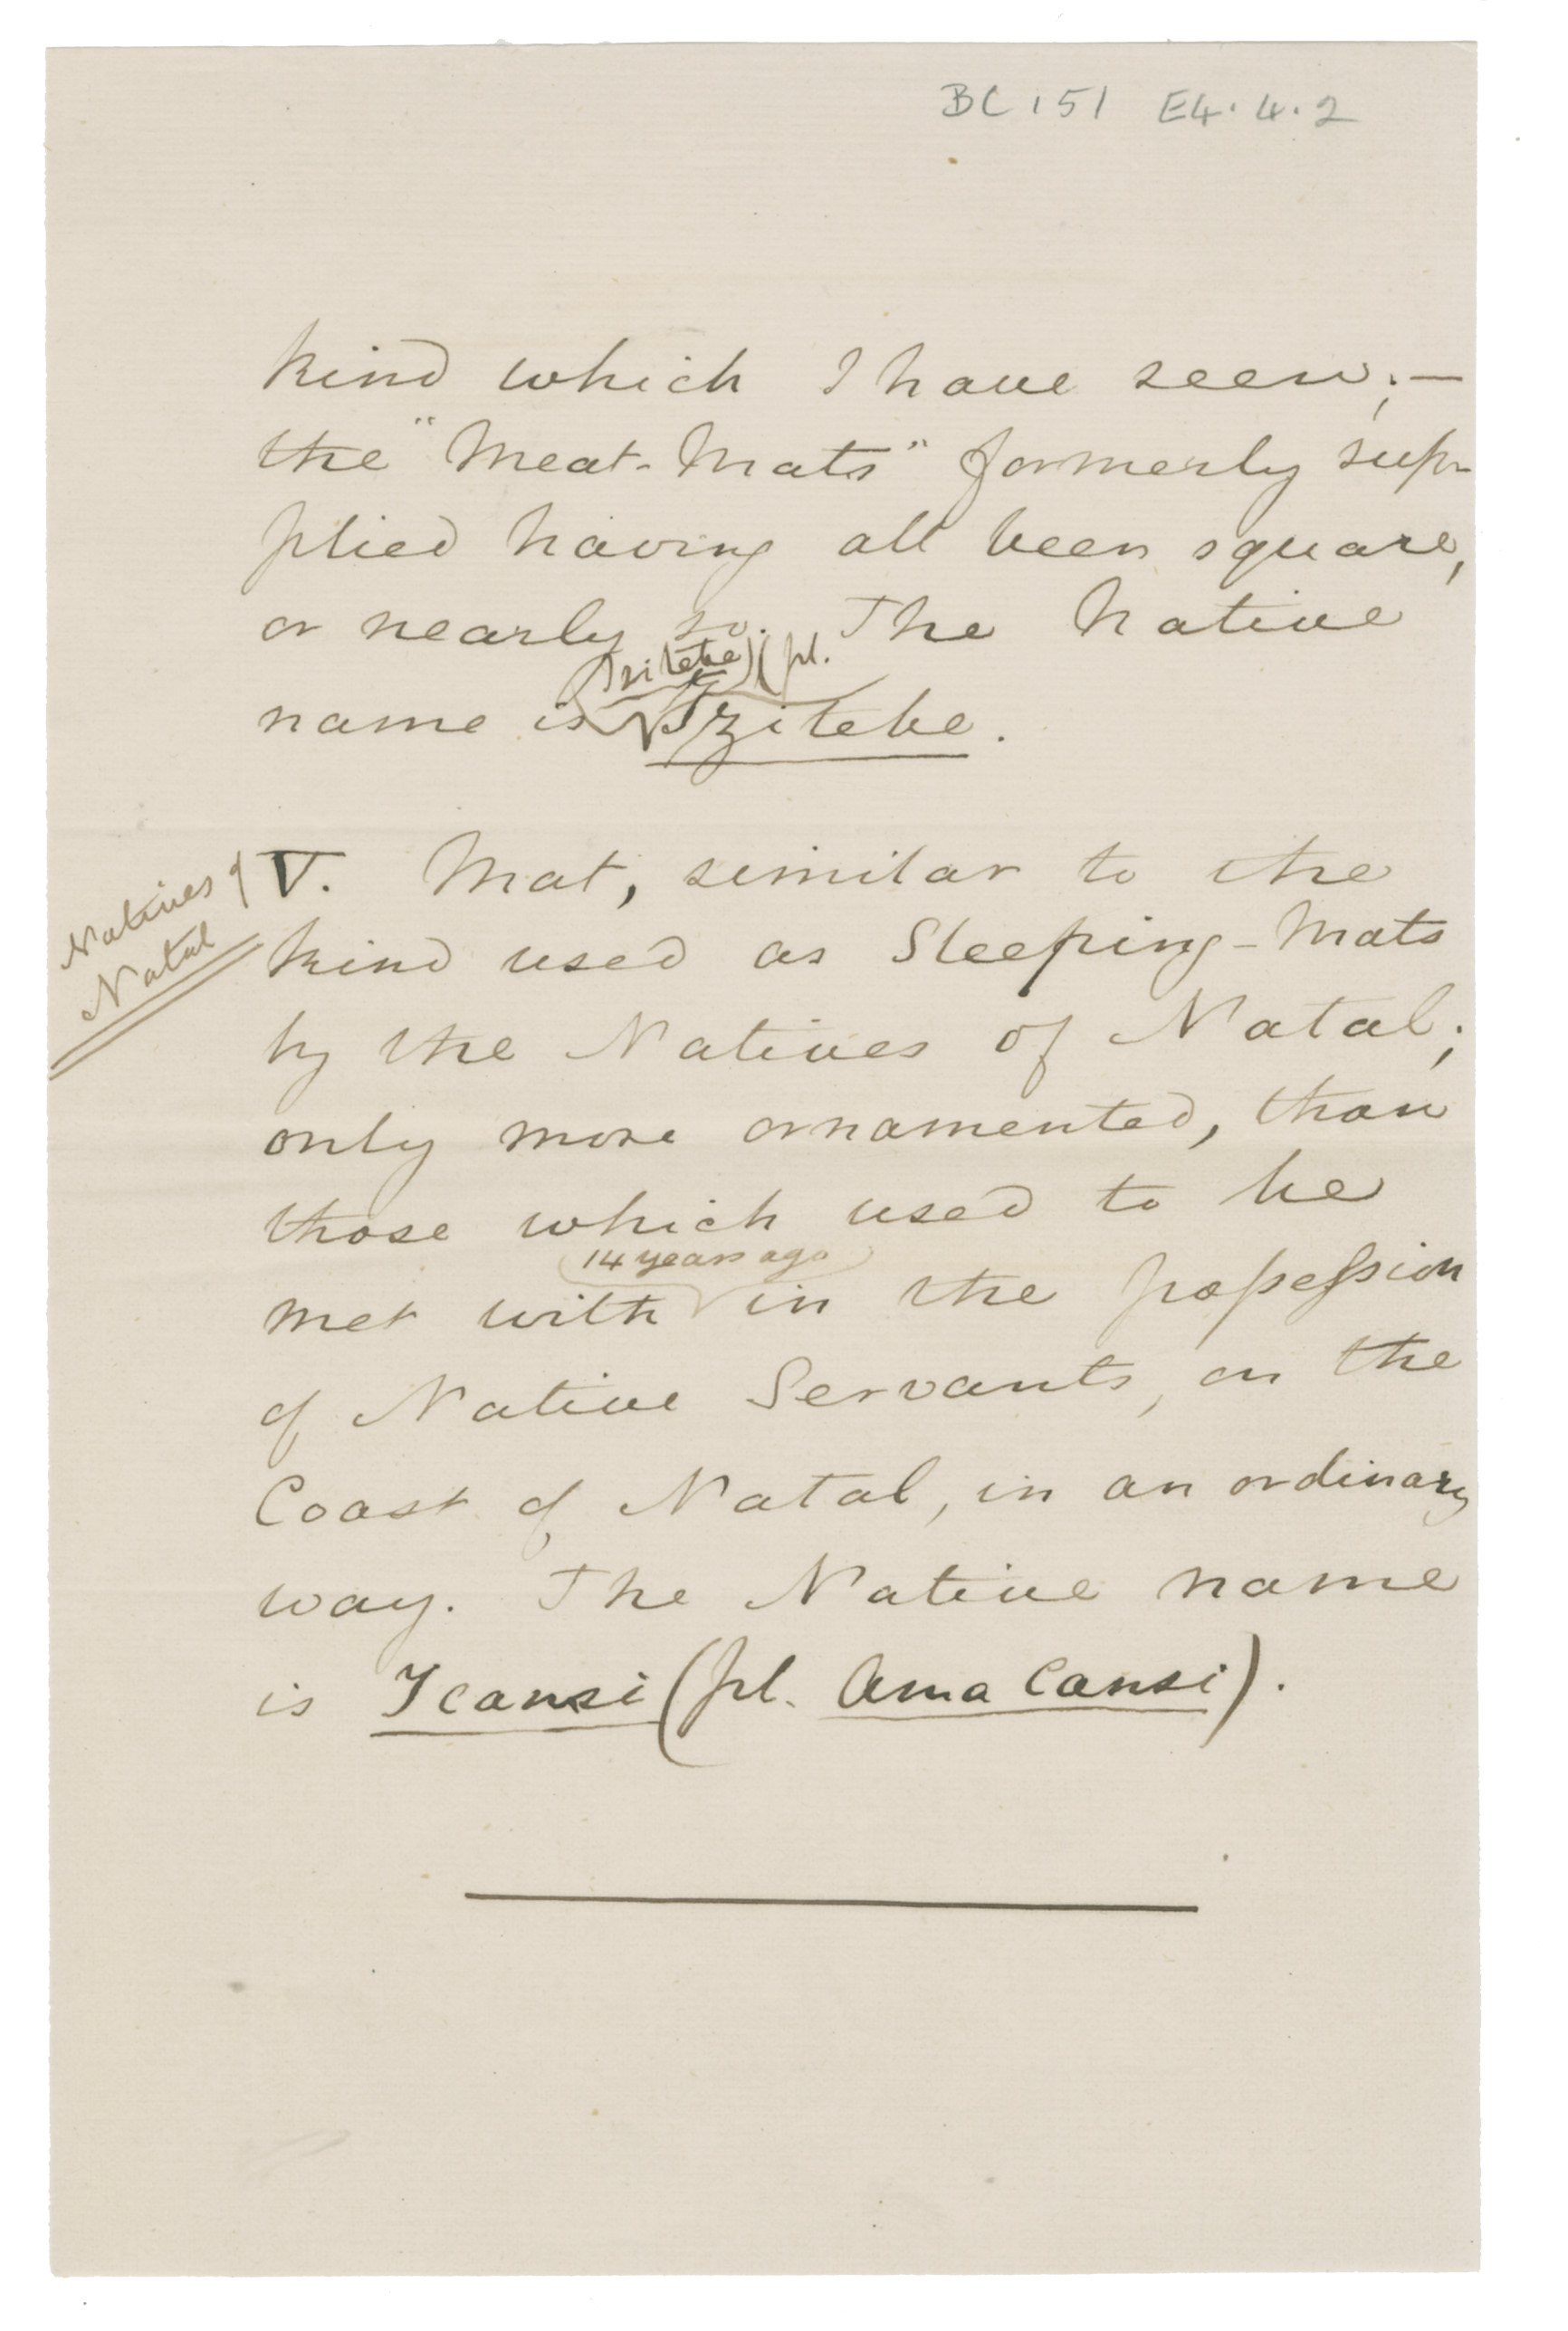 BC 151 E4.4.2
kind which I have seen;—
the "Meat-Mats" formerly sup-
plied having all been square,
or nearly so. The Native
(pl.
name is Izitebe.
Natives of
Natal
V. Mat, similar to the
kind used as Sleeping-Mats
by the Natives of Natal;
only more ornamented, than
those which used to be
14 years ago
met with in the possession
of Native Servants, on the
Coast of Natal, in an ordinary
way. The Native name
is Icansi (pl. Ama Cansi).